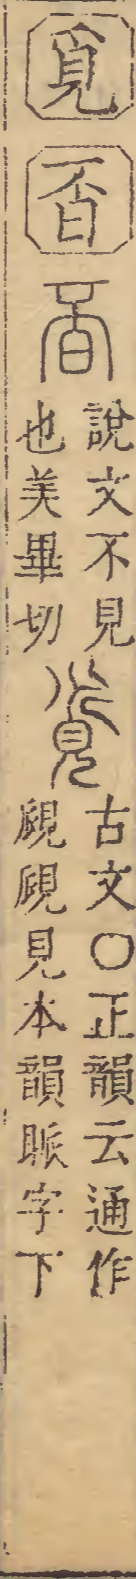 覓
㫘
㫘
說文不見
也美畢切
覓
古文〇正韻云通作
覛覛見本韻眽字下